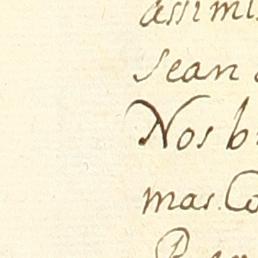 assimis
sean
Nos b
mas. Co